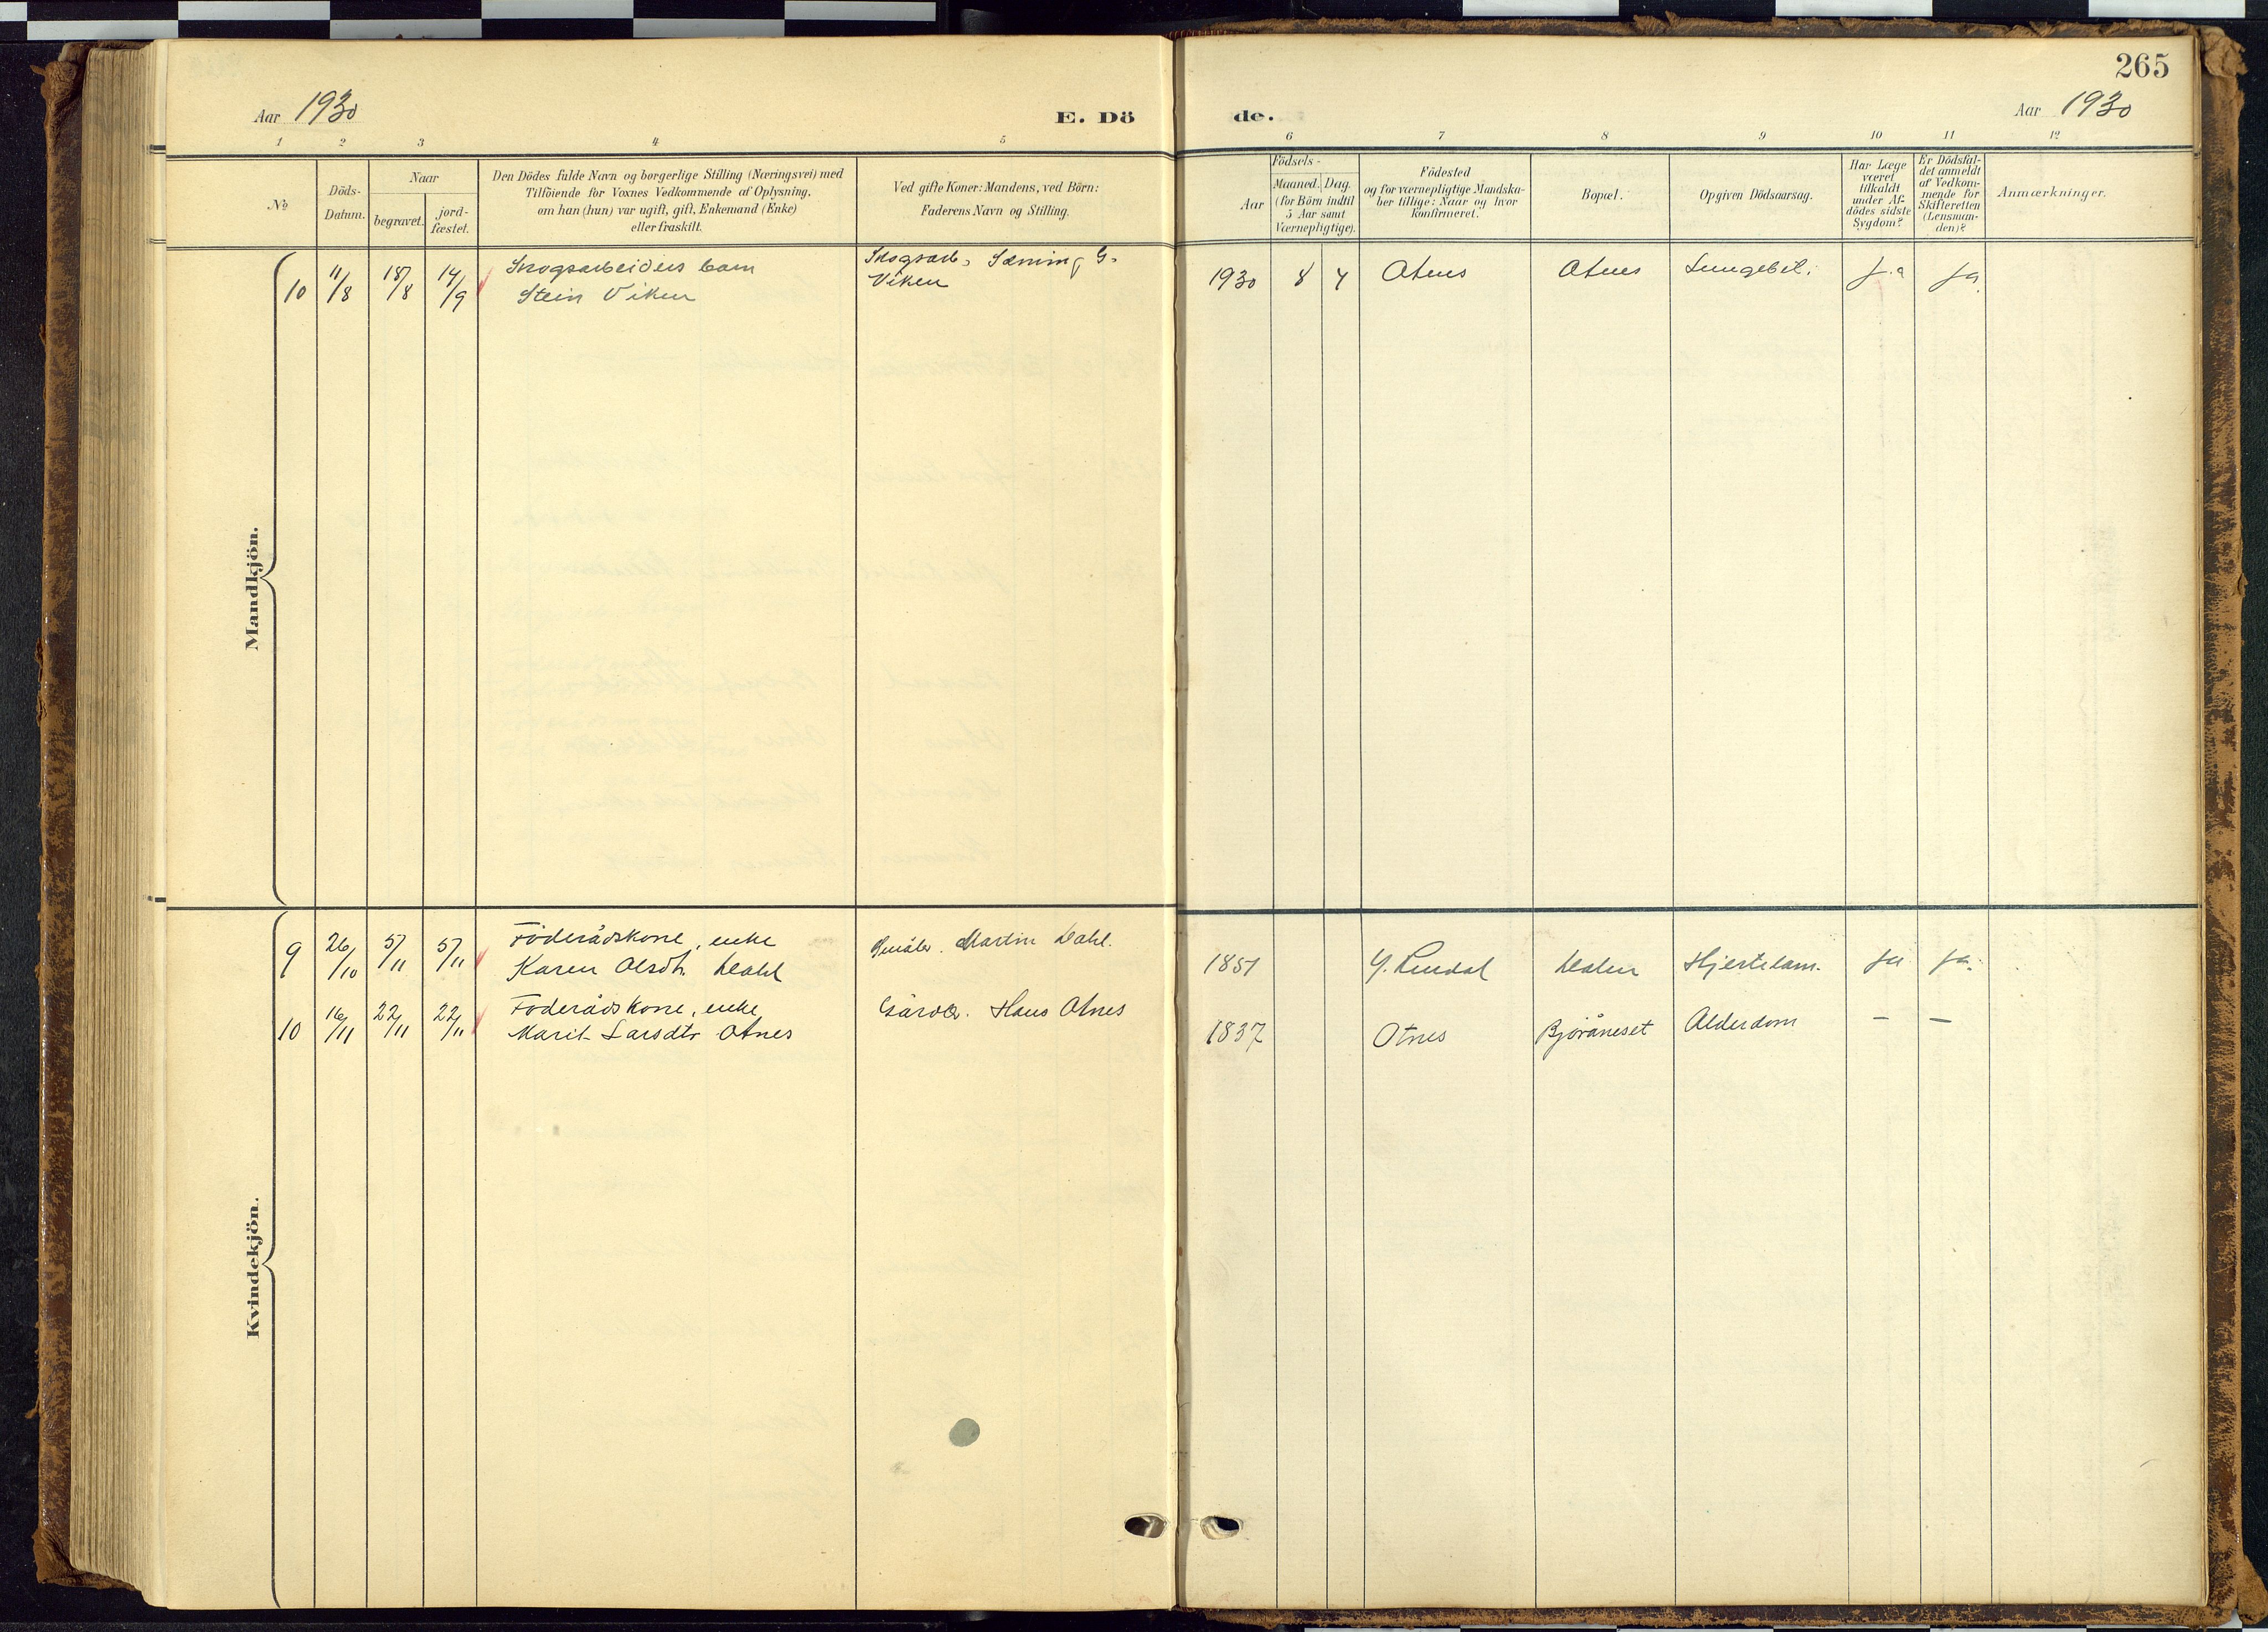 265
Aar 1930
E. Dö
de.
Aar 1930
1 2 3 4 5 6 7 8 9 10 11 12
No
Döds-
Datum.
Naar
begravet.
jord-
fæstet.
Den Dödes fulde Navn og borgerlige Stilling (Næringsvei) med
Tilföiende for Voxnes Vedkommende af Oplysning,
om han (hun) var ugift, gift, Enkemand (Enke)
eller fraskilt.
Ved gifte Koner: Mandens, ved Börn:
Faderens Navn og Stilling.
Födsels-
Aar
Maaned. Dag.
(for Börn indtil
5 Aar samt
Værnepligtige).
Födested
og for værnepligtige Mandska-
ber tillige: Naar og hvor
konfirmeret.
Bopæl.
Opgiven Dödsaarsag.
Har Læge
været
tilkaldt
under Af-
dödes sidste
Sygdom?
Er Dödsfal-
det anmeldt
af Vedkom-
mende for
Skifteretten
(Lensman-
den)?
Anmærkninger.
Mandkjön.
10 11/8 18/8 14/9 Skogsarbeiders barn
Stein Viken
Skogsarb. Sæming G.
Viken
1930 8 4 Otnes Otnes Lungebet. ja ja
Kvindekjön.
9 26/10 5/11 5/11 Föderådskone, enke
Karen Olsdtr. Dahl
Martin Dahl.
1851 Y. Rendal Dalen Hjertelam. ja ja.
10 16/11 22/11 22/11 Föderådskone, enke
Marit Larsdtr Otnes
Gårdbr. Hans Otnes
1837 Otnes Björåneset Alderdom – –